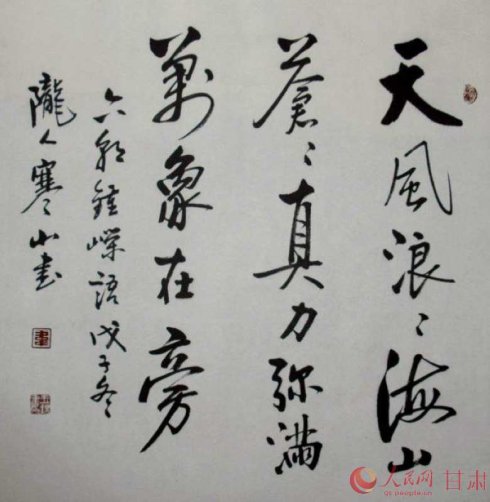 天風浪〻海山
蒼〻真力弥滿
萬象在旁
六朝鍾嶸語戊子冬
隴人寒山書
人民网 甘肃
gs.people.cn